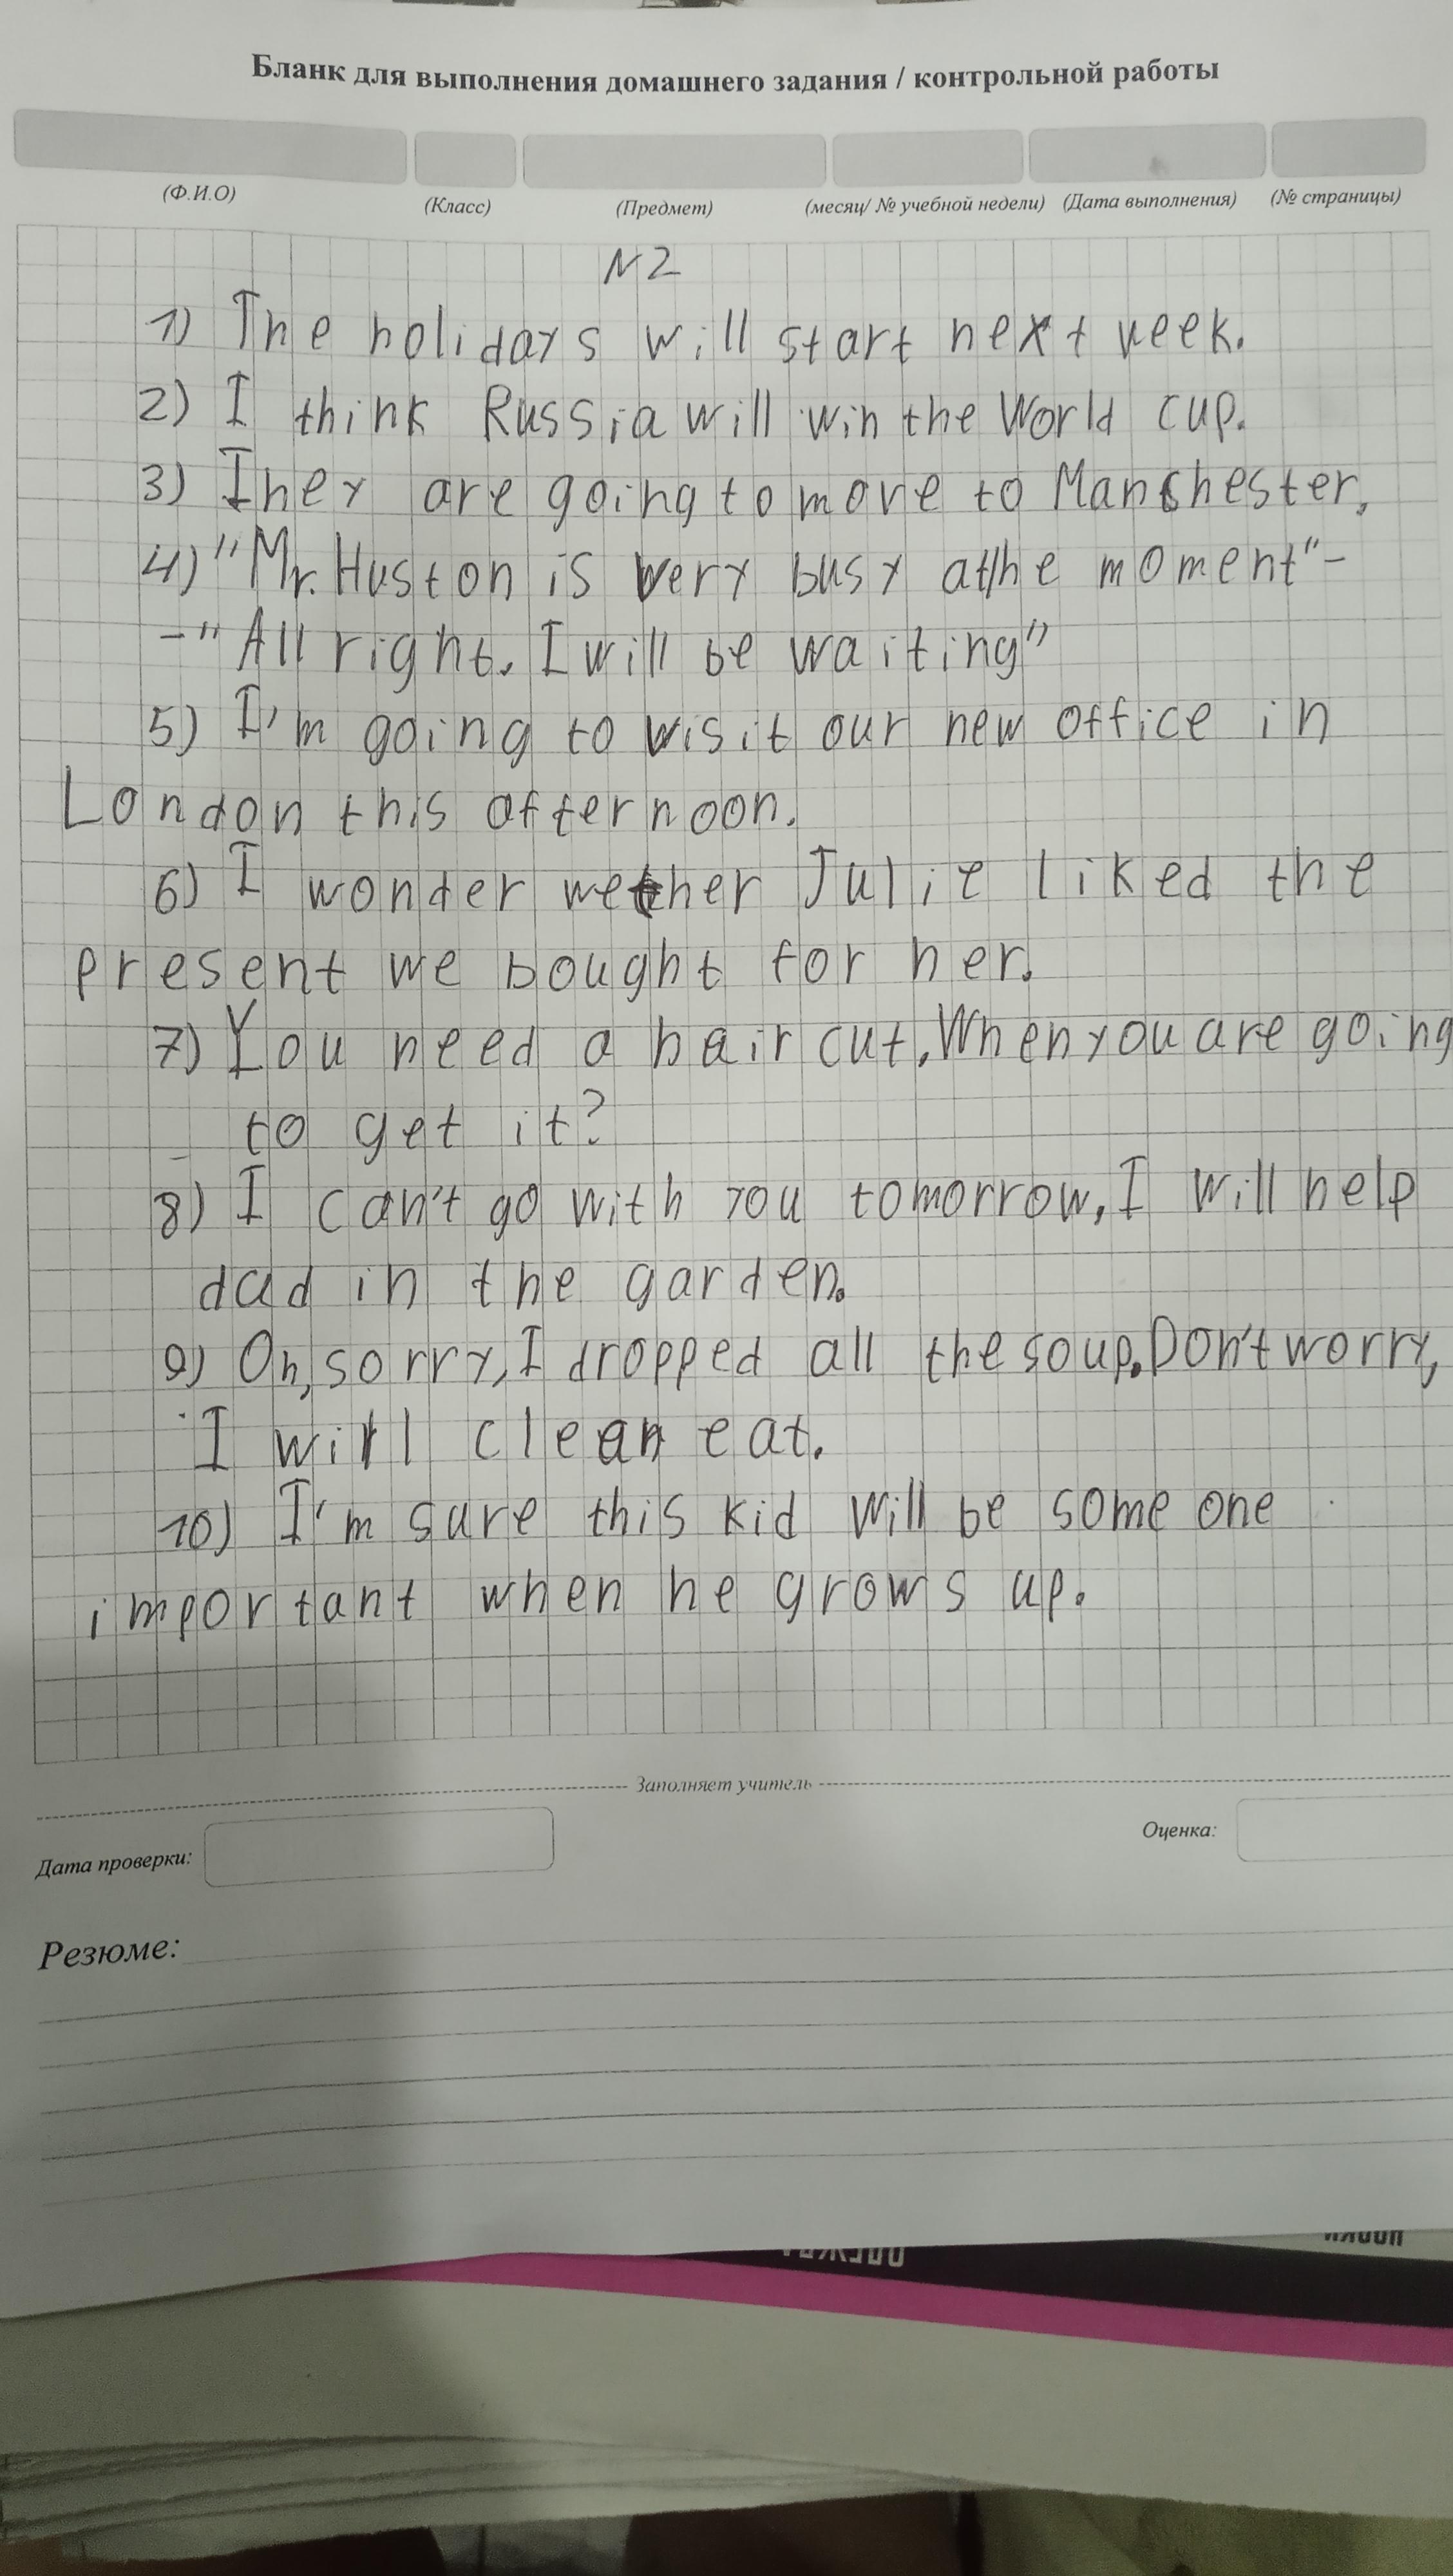 Бланк для выполнения домашнего задания / контрольной работы
(Ф.И.О) (Класс) (Предмет) (месяц/ № учебной недели) (Дата выполнения) (№ страницы)
N2
1) The holidays will start next week.
2) I think Russia will win the World cup.
3) They are going to move to Manchester.
4) "Mr. Huston is very busy at the moment" –
– "All right. I will be waiting"
5) I'm going to visit our new office in
London this afternoon.
6) I wonder wether Julie liked the
present we bought for her.
7) You need a hair cut. When you are going
to get it?
8) I can't go with you tomorrow, I will help
dad in the garden.
9) Oh, sorry, I dropped all the soup. Don't worry,
I will clean eat.
10) I'm sure this kid will be some one
important when he grows up.
Заполняет учитель
Дата проверки: Оценка:
Резюме: